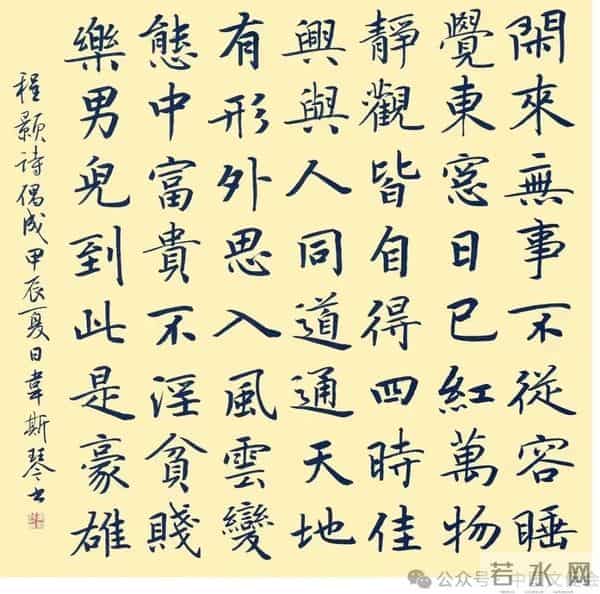 閑來無事不從容睡
覺東窓日已紅萬物
靜觀皆自得四時佳
興與人同道通天地
有形外思入風雲變
態中富貴不淫貧賤
樂男兒到此是豪雄
程颢诗偶成甲辰夏日韋斯琴书
公众号
若水网